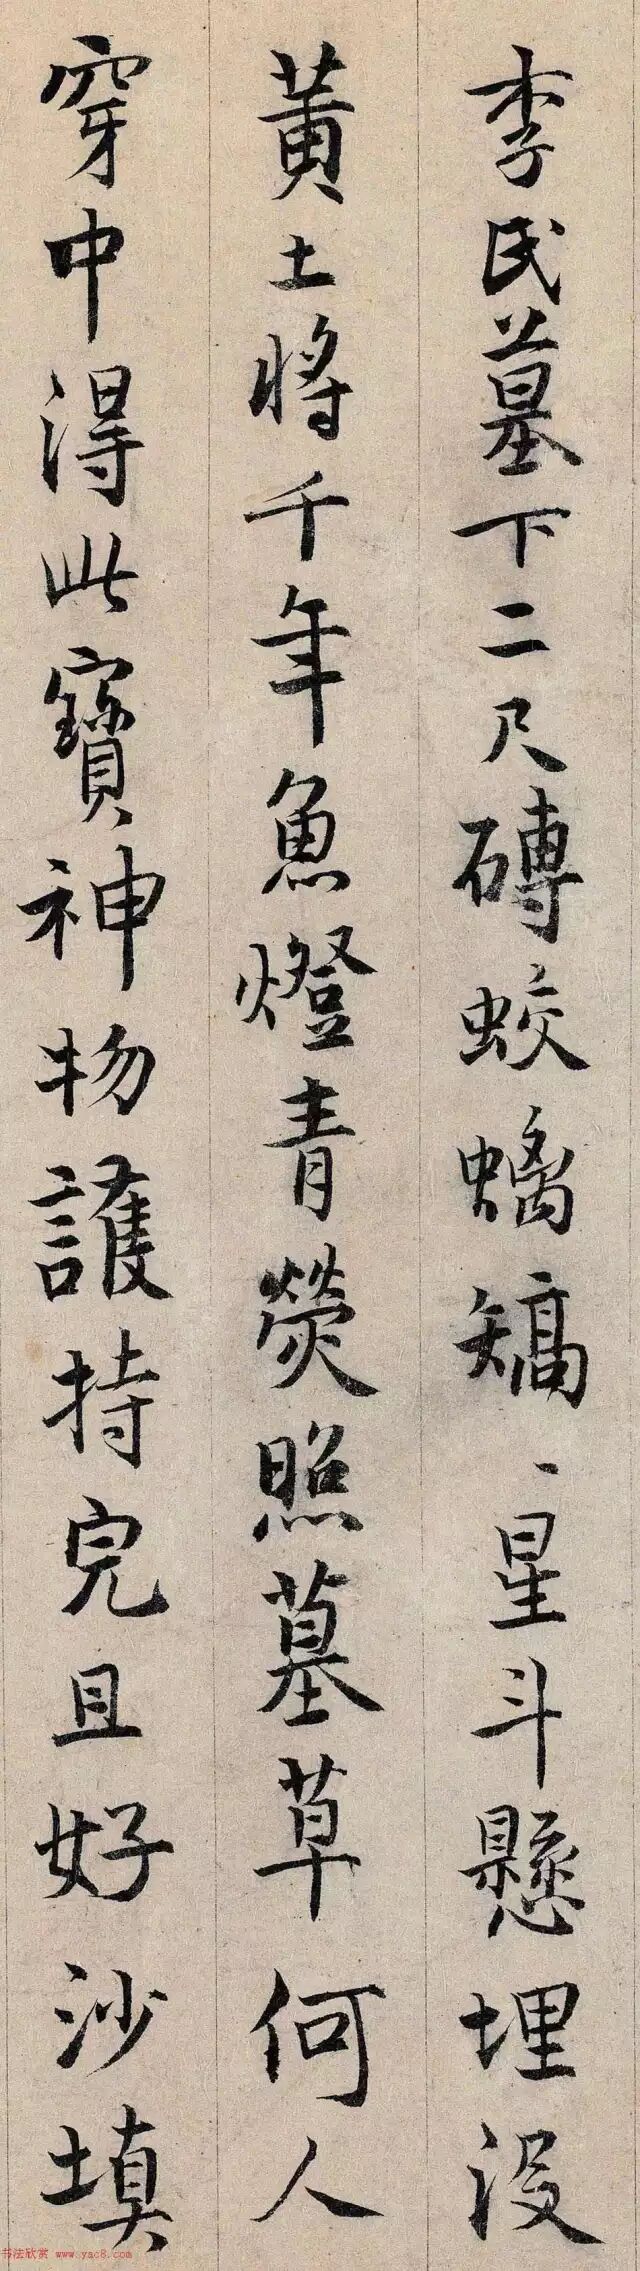 李氏墓下二尺磚蛟螭矯〻星斗懸埋没
黄土將千年魚燈青熒照墓草何人
穿中得此寶神物護持完且好沙填
书法欣赏 www.yac8.com